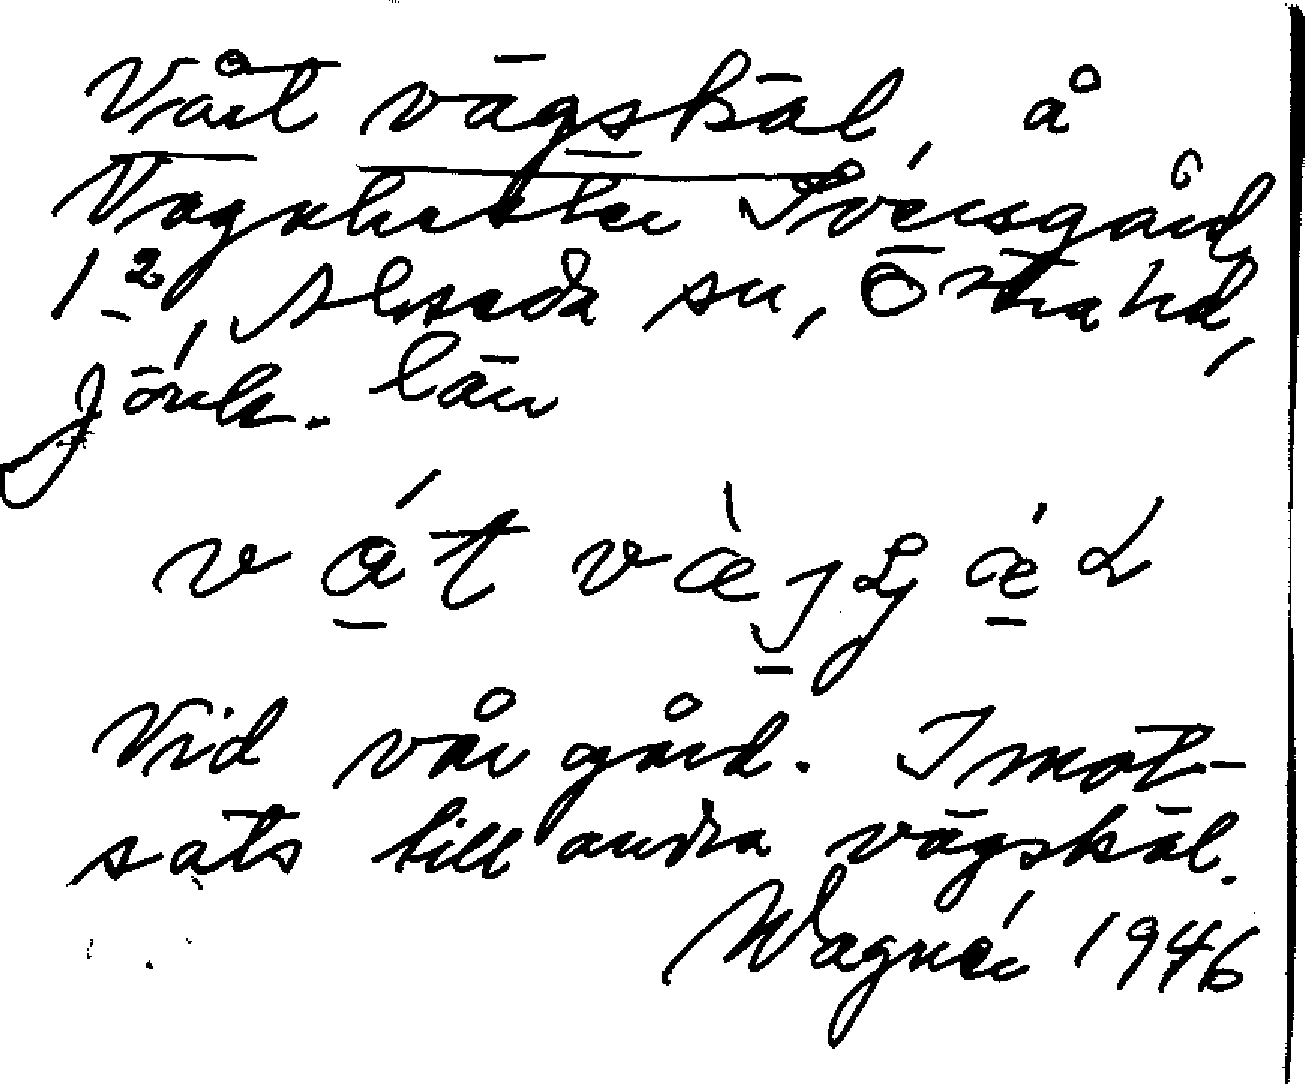 Vårt vägskäl, å
Vagnhester Iversgård
1², Alseda sn, Östra hd,
Jönk. län
vát væ̀jʂǽɫ
Vid vår gård. I mot-
sats till andra vägskäl.
Wagnér 1946